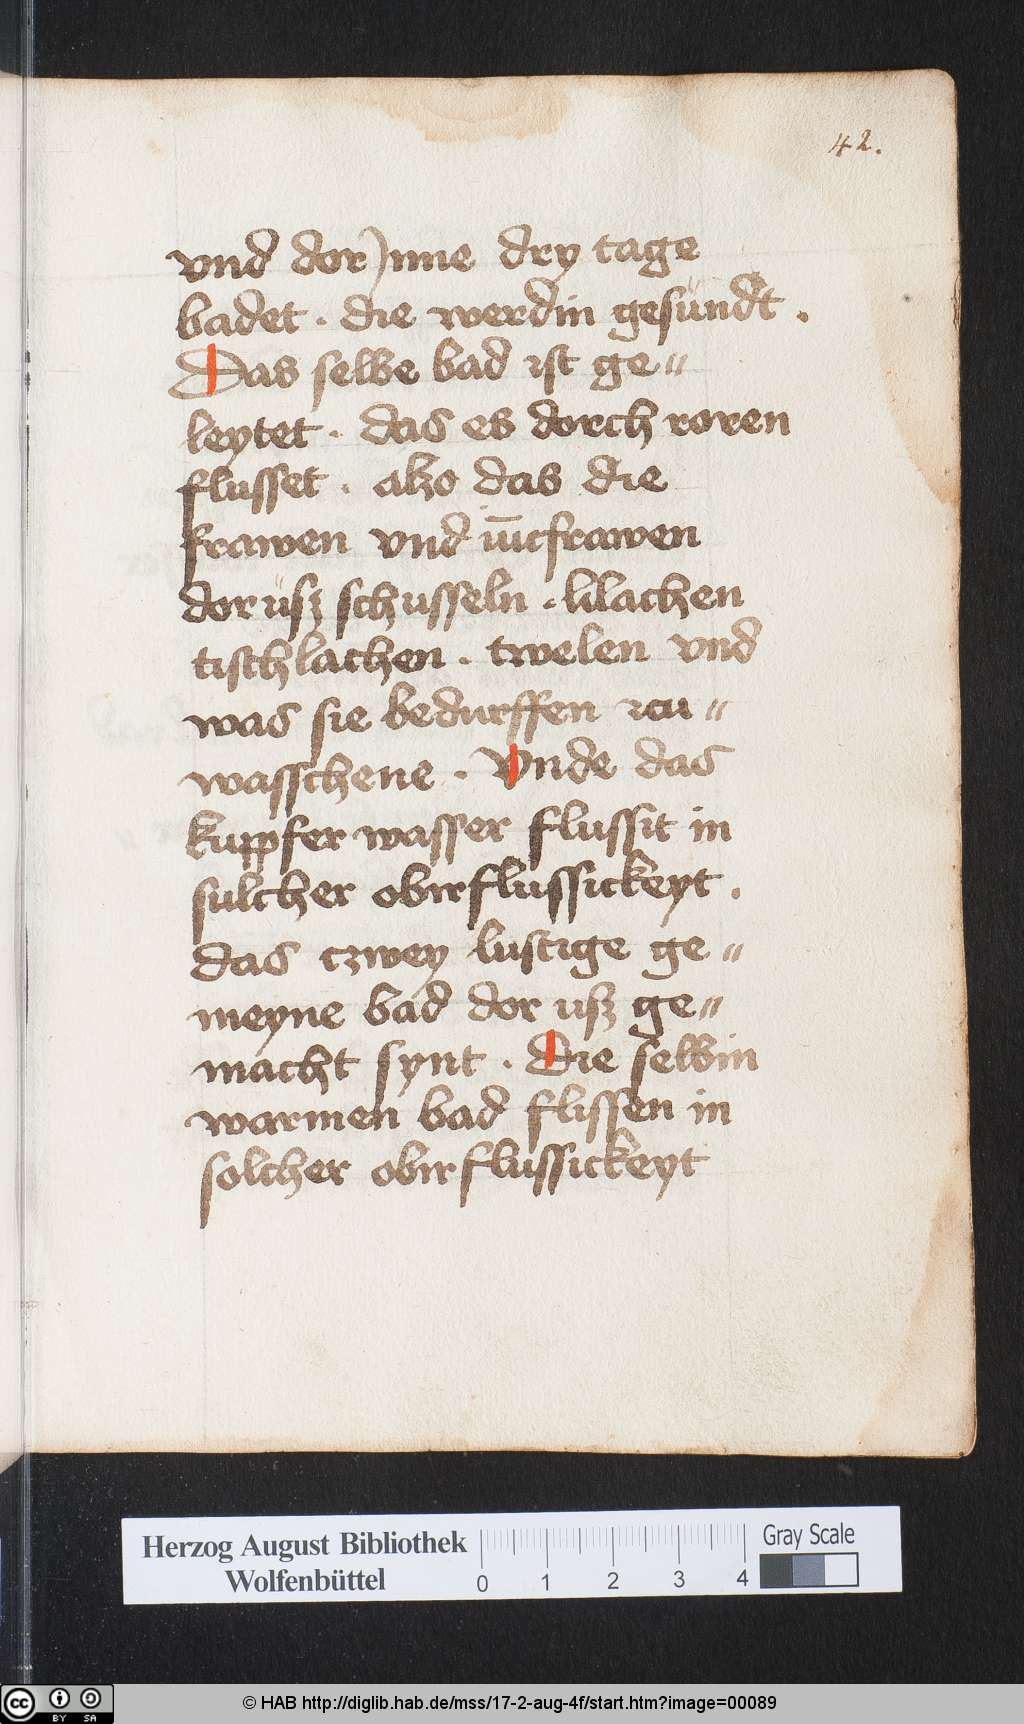 42.
vnd dor)nne dry tage
badet . die werdin gesündt .
Das selbe bad ist ge〃
leytet . das es dorch roren
flusset . also das die
frawen vnd iu̅cfrawen
dor üsz schusseln . lilachen
tischlachen . twelen vnd
was sie bedurffen zcu〃
wasschene . Vnde das
kuppfer wasser flussit in
sulcher obirflussickeyt .
das czwey lustige ge〃
meyne bad dor usz ge〃
macht synt . Die selbin
warmen bad flissen in
solcher obirflussickeyt
Herzog August Bibliothek
Wolfenbüttel
0 1 2 3 4
Gray Scale
cc BY SA
© HAB http://diglib.hab.de/mss/17-2-aug-4f/start.htm?image=00089